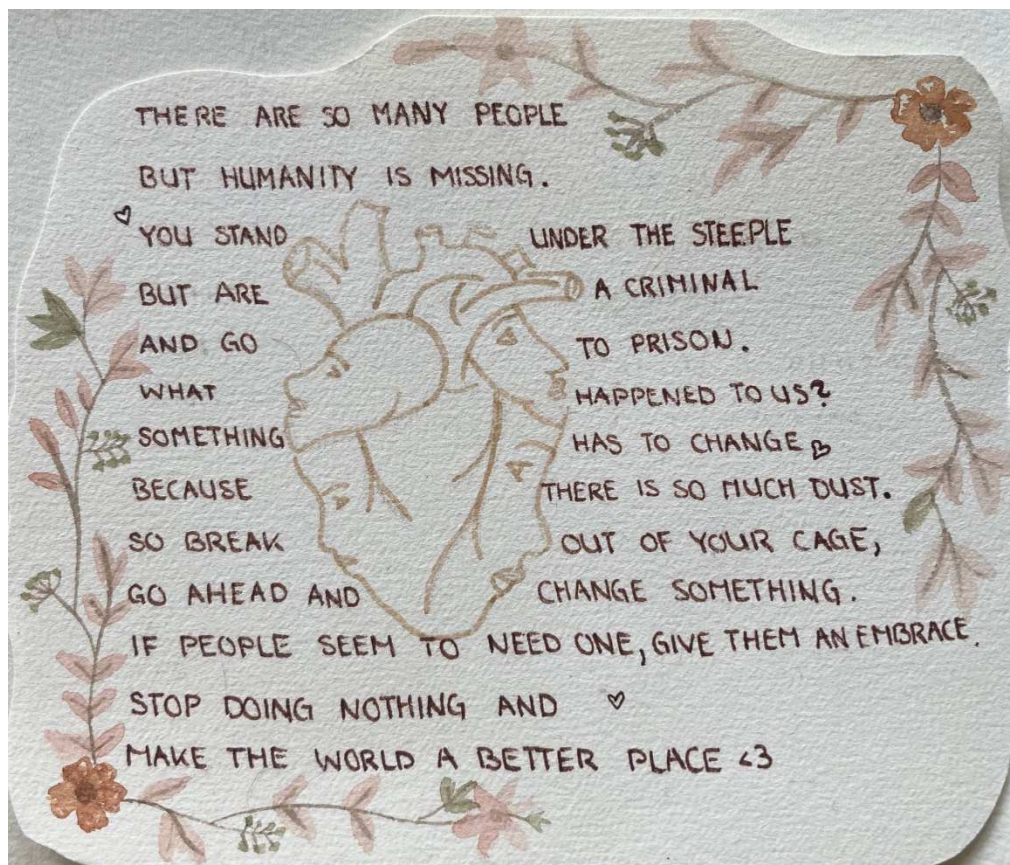 THERE ARE SO MANY PEOPLE
BUT HUMANITY IS MISSING.
YOU STAND UNDER THE STEEPLE
BUT ARE A CRIMINAL
AND GO TO PRISON.
WHAT HAPPENED TO US?
SOMETHING HAS TO CHANGE
BECAUSE THERE IS SO MUCH DUST.
SO BREAK OUT OF YOUR CAGE,
GO AHEAD AND CHANGE SOMETHING.
IF PEOPLE SEEM TO NEED ONE, GIVE THEM AN EMBRACE.
STOP DOING NOTHING AND
MAKE THE WORLD A BETTER PLACE <3